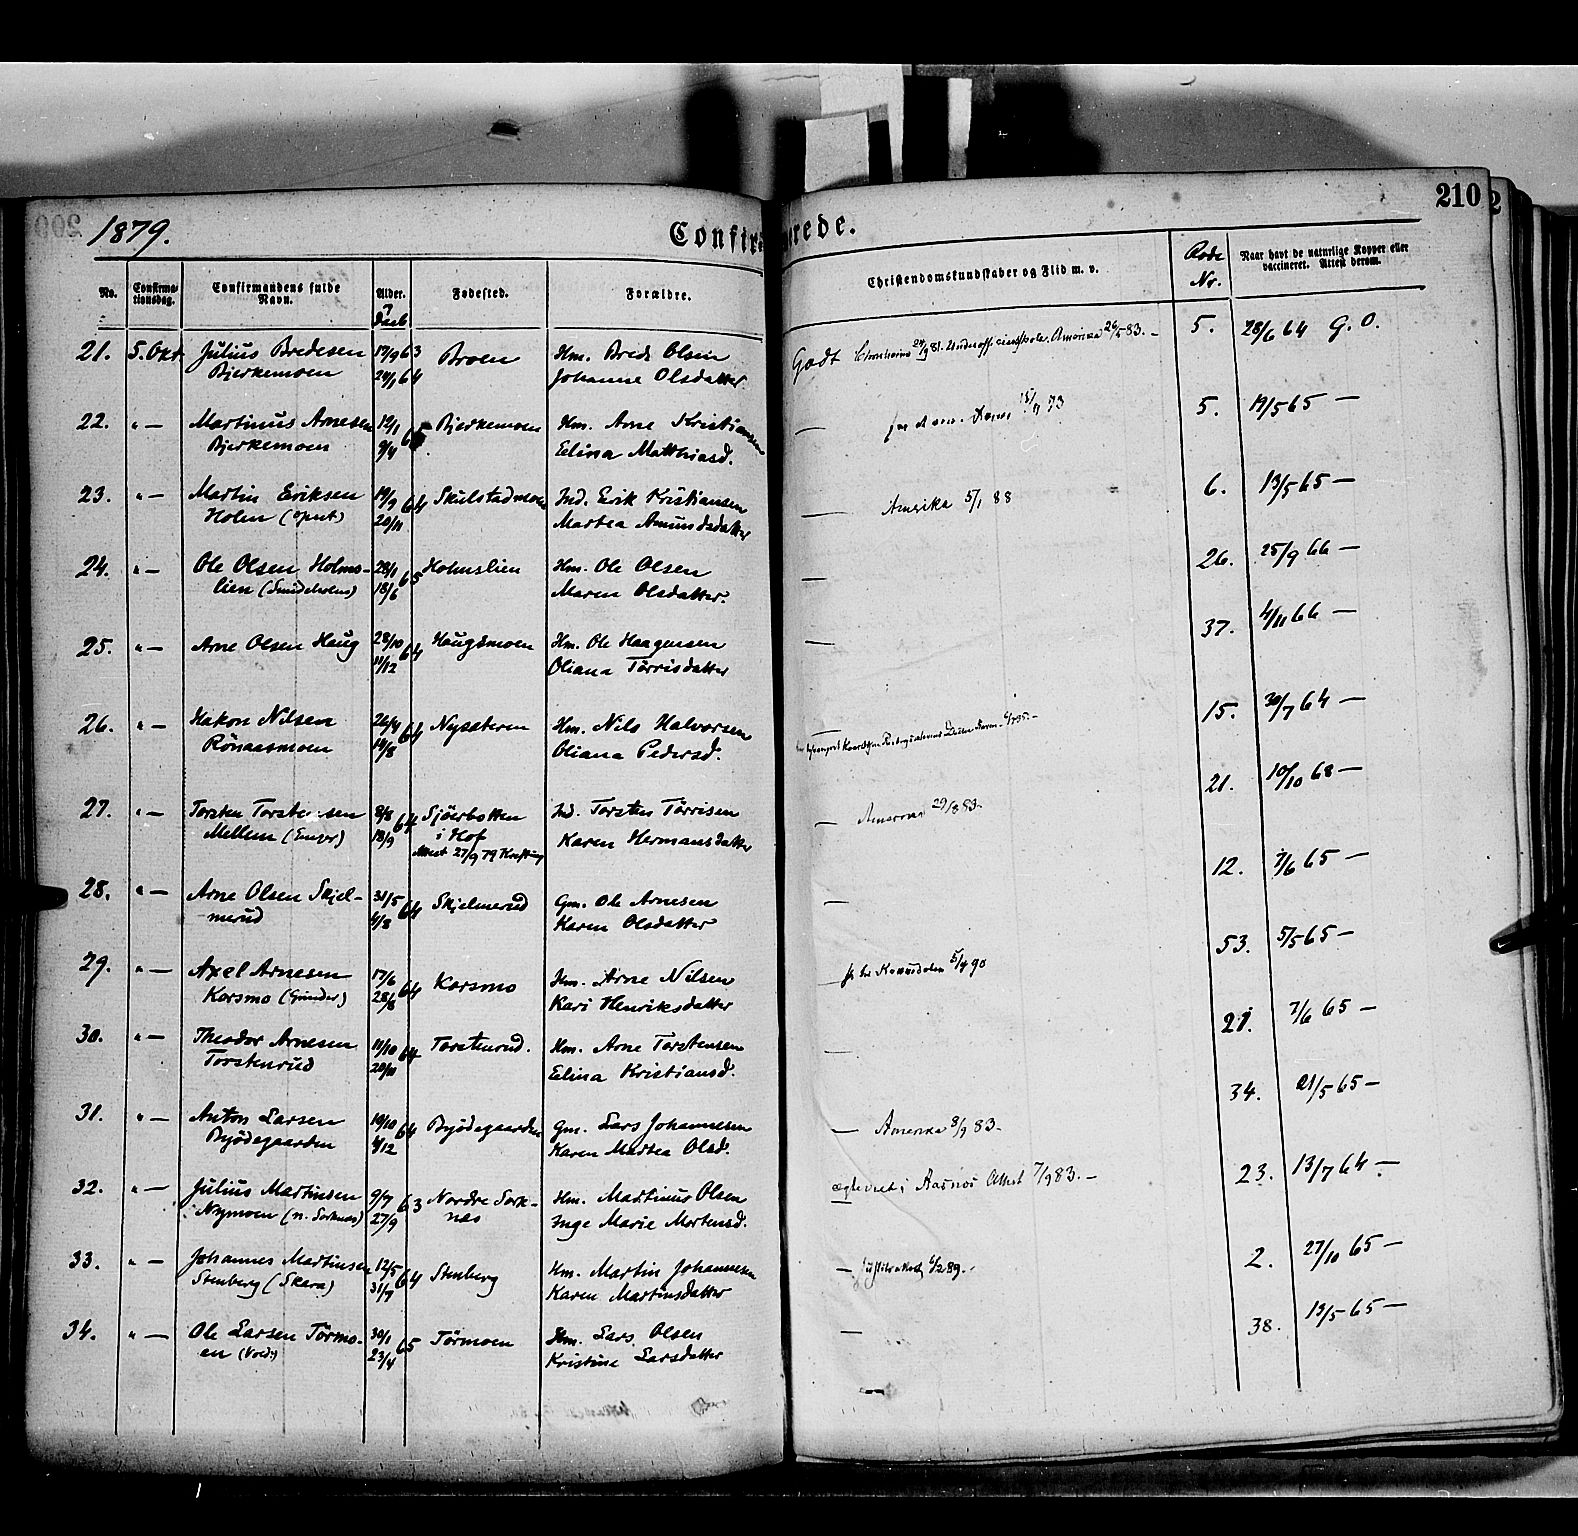 210
1879.
Confirmerede.
No.
Confirma-
tionsdag.
Confirmandens fulde
Navn.
Alder.
Daab
Fødested.
Forældre.
Christendomskundskaber og Flid m. v.
Rode
Nr.
Naar havt de naturlige Kopper eller
vaccineret. Attest derom.
21. 5. Okt. Julius Bredesen 17/9 63 Broen Hm. Brede Olsen Godt Amerika 26/5 83. — 5. 28/6 64 G. O.
Bjerkemoen 24/1 64 Johanne Olsdatter
22. " — Martinus Arnesen 12/1 65 Bjerkemoen Hm. Arne Kristiansen — 5. 19/5 65 —
Bjerkemoen 9/4 Elina Matthiasd.
23. " — Martin Eriksen 19/9 64 Skulstadmoen Ind. Erik Kristiansen — Amerika 5/1 88 6. 13/5 65 —
Holen 20/11 Martea Amundsdatter
24. " — Ole Olsen Holms- 28/1 65 Holmslien Hm. Ole Olsen — 26. 25/9 66 —
lien 18/6 Maren Olsdatter.
25. " — Arne Olsen Haug 28/10 64 Haugsmoen Hm. Ole Haagensen — 37. 4/11 66 —
11/12 Oliana Törrisdatter
26. " — Hakon Nilsen 26/4 64 Nysæteren Hm. Nils Halvorsen 15. 30/7 64 —
Rönaasmoen 14/8 Oliana Pedersd.
27. " — Torsten Torstensen 8/8 64 Sjöerbotten Ind. Torsten Törrisen — 29/8 83. 21. 10/10 68 —
Mellem 18/9 i Hof Karen Hermansdatter
Attest 27/9 79
28. " — Arne Olsen Skjel- 31/5 64 Skjelmerud Gm. Ole Arnesen — 12. 7/6 65 —
merud 4/8 Karen Olsdatter
29. " — Axel Arnesen 17/6 64 Korsmo Hm. Arne Nilsen 53. 5/5 65 —
Korsmo (Grinder) 28/8 Kari Henriksdatter
30. " — Theodor Arnesen 11/10 64 Torstenrud. Hm. Arne Torstensen — 21. 7/6 65 —
Torstenrud 20/11 Elina Kristiansd.
31. " — Anton Larsen 19/10 64 Byödegaarden Gm. Lars Johannesen — Amerika 8/9 83. 34. 21/5 65 —
Byödegaarden 4/12 Karen Martea Olsd.
32. " — Julius Martinsen 9/7 63 Nordre Sork- Hm. Martinus Olsen Attest 7/9 83. — 23. 13/7 64 —
Nymoen (n. Sorknæs) 27/9 næs Inge Marie Mortensd.
33. " — Johannes Martinsen 12/5 64 Stenberg Hm. Martin Johannesen — 2. 27/10 65 —
Stenberg (Skara) 31/7 Karen Martinsdatter
34. " — Ole Larsen Törmo- 30/1 65 Törmoen Hm. Lars Olsen — 38. 13/5 65 —
en 23/4 Kristine Larsdatter